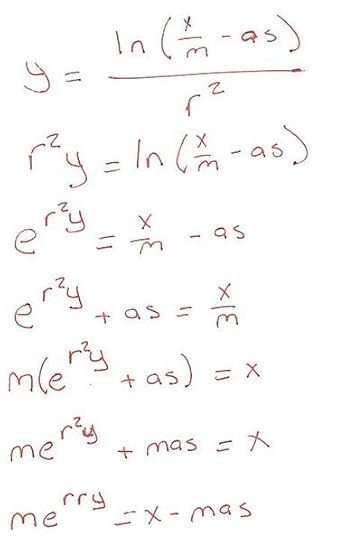 y = ln(x/m - as) / r²
r²y = ln(x/m - as)
e^(r²y) = x/m - as
e^(r²y) + as = x/m
m(e^(r²y) + as) = x
me^(r²y) + mas = x
me^(rry) = x - mas